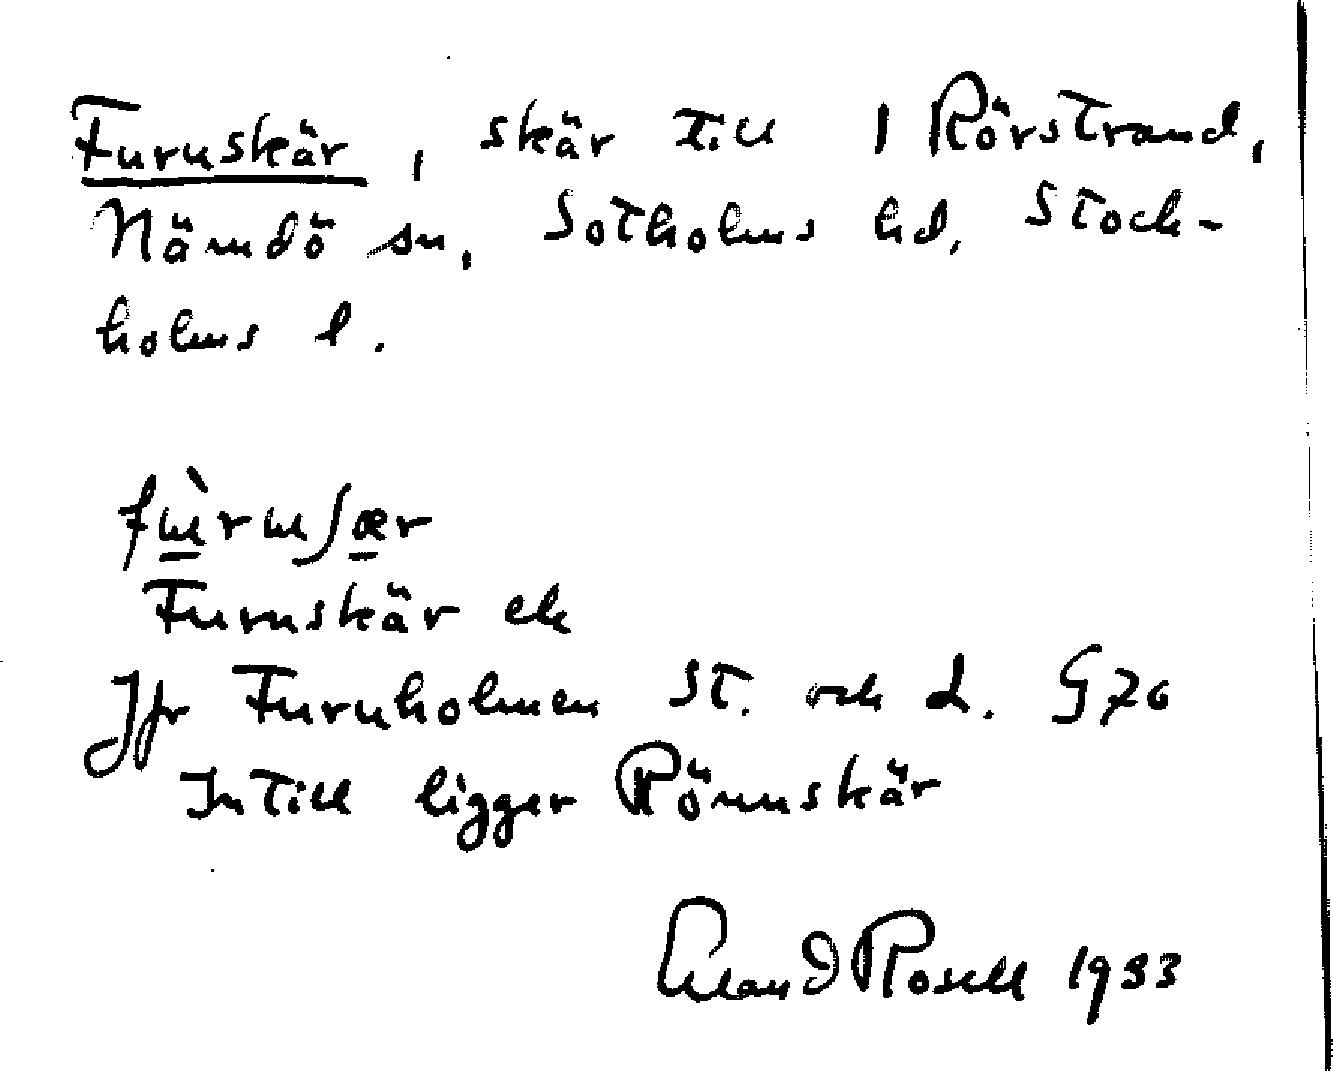 Furuskär, skär till 1 Rörstrand,
Nämdö sn, Sotholms hd, Stock-
holms l.
fɯ̀rɯʃær
Furuskär ek
Jfr Furuholmen St. och L. G76
Intill ligger Rönnskär
Rosell 1933